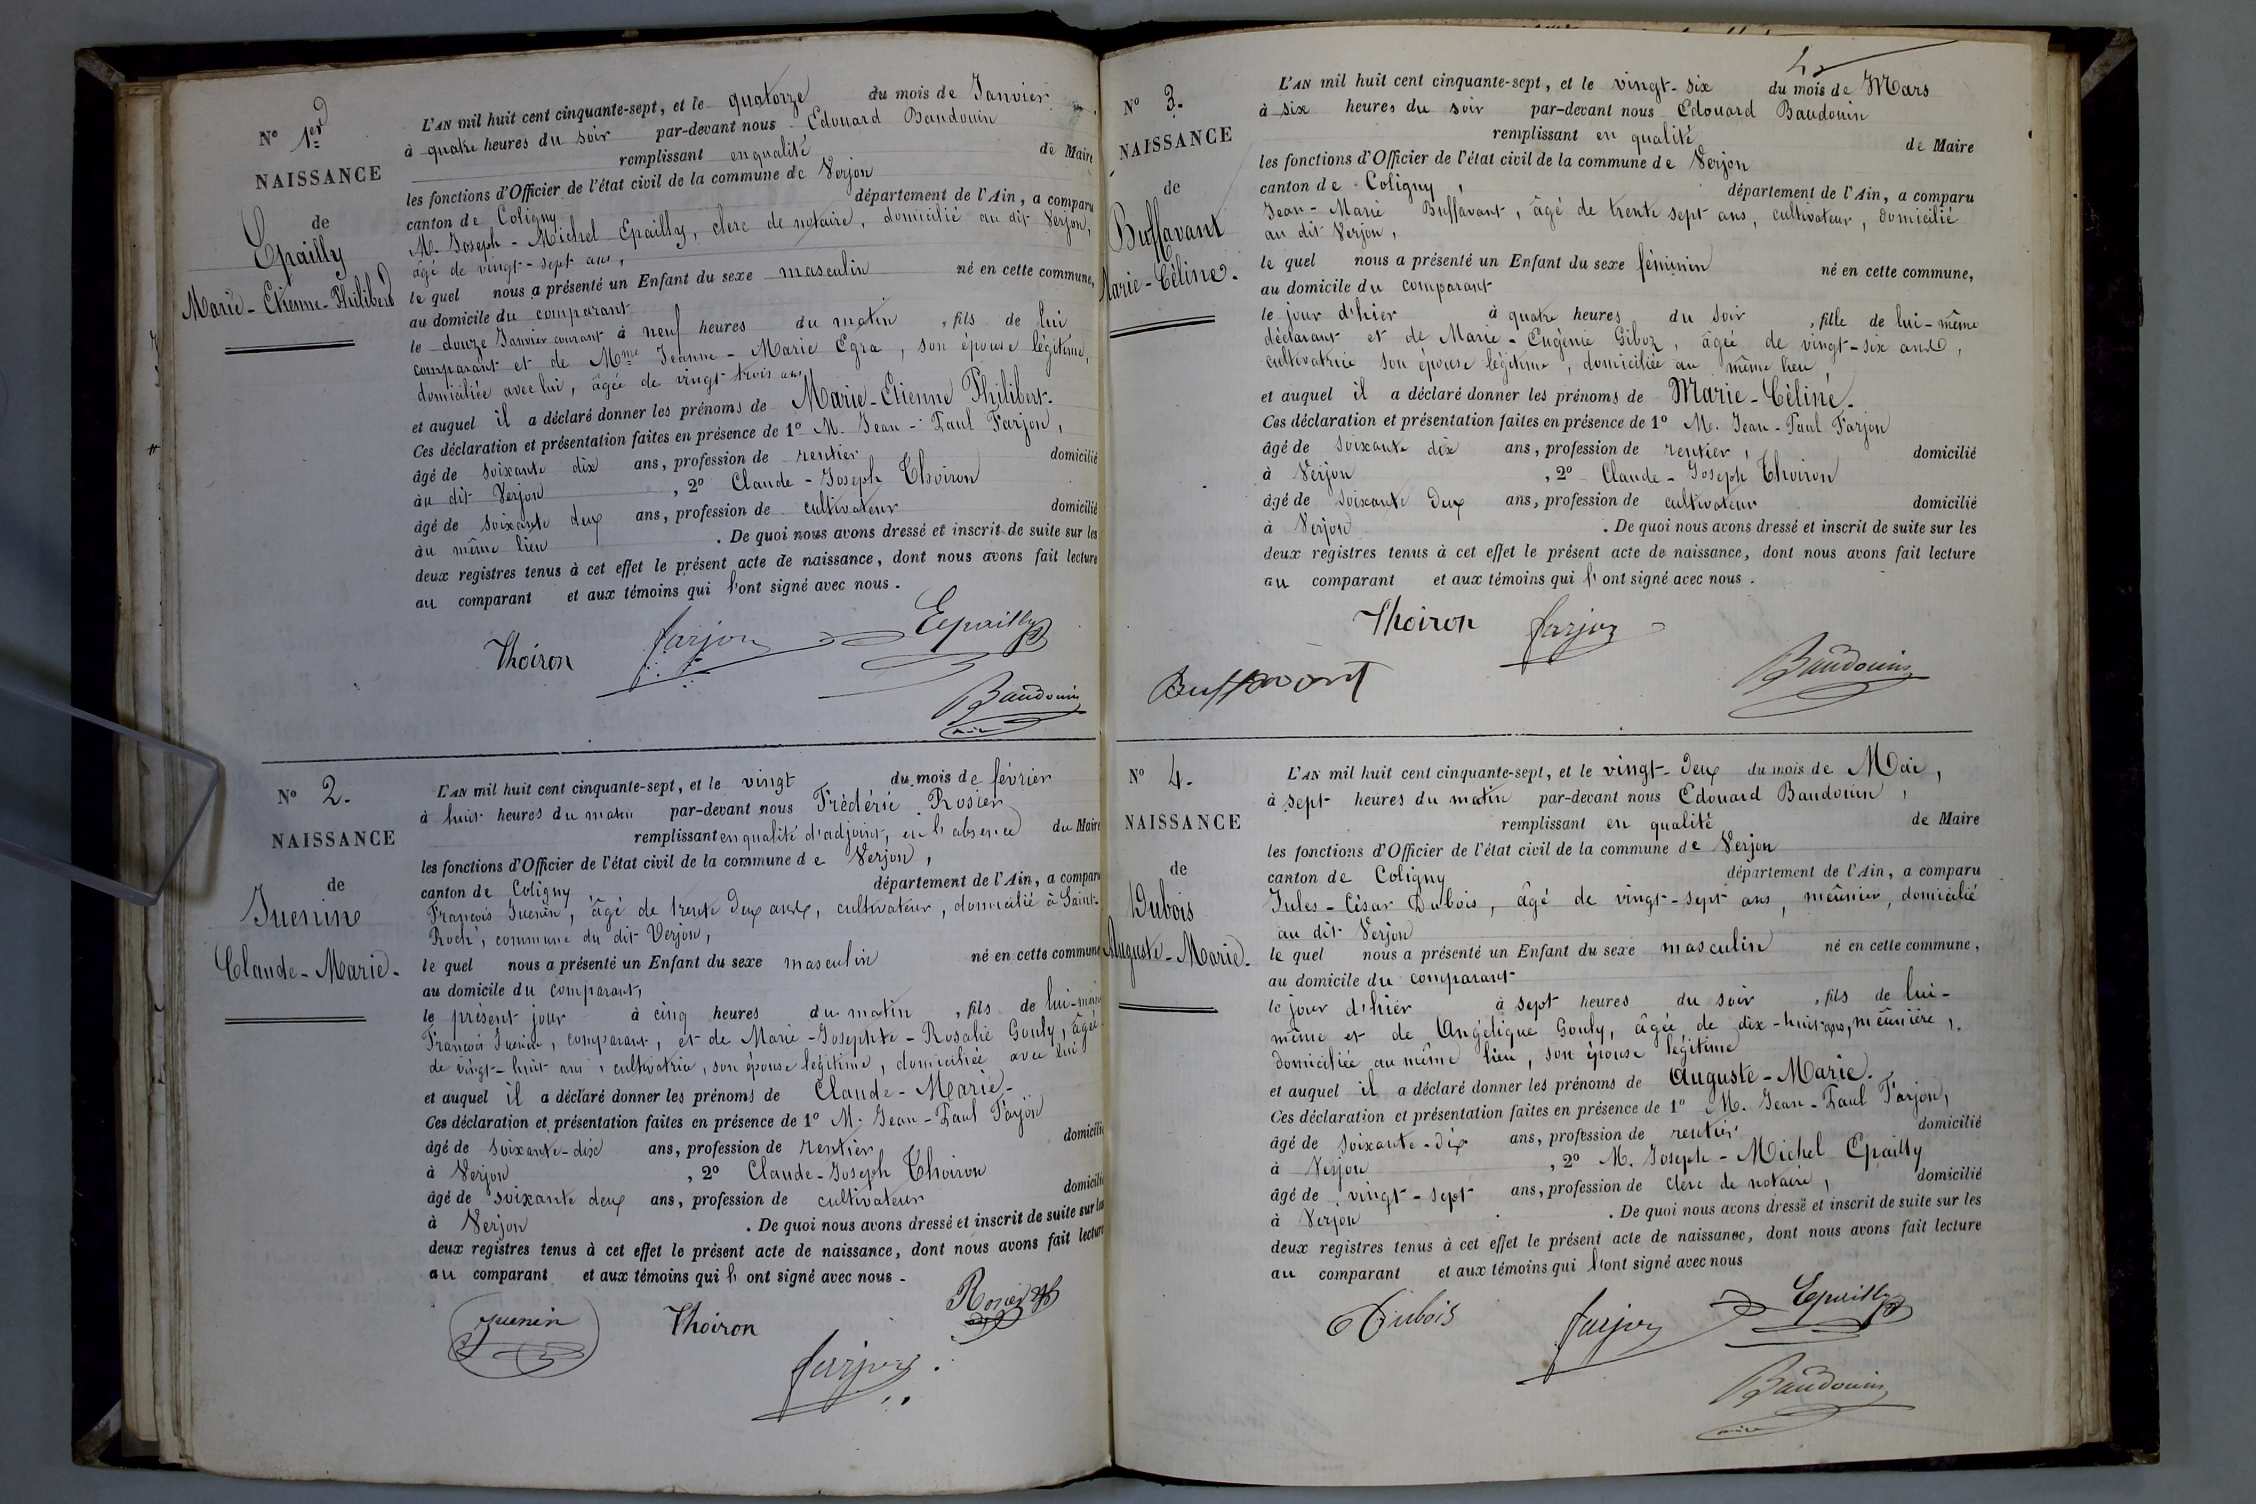 N° 1er
NAISSANCE
de
Epailly
Marie-Etienne-Philibert
L'AN mil huit cent cinquante-sept, et le quatorze du mois de Janvier
à quatre heures du soir par-devant nous Edouard Baudouin
remplissant en qualité de Maire
les fonctions d'Officier de l'état civil de la commune de Verjon
canton de Coligny département de l'Ain, a comparu
M. Joseph-Michel Epailly, clerc de notaire, domicilié au dit Verjon,
âgé de vingt-sept ans,
le quel nous a présenté un Enfant du sexe masculin né en cette commune,
au domicile du comparant
le douze Janvier courant à neuf heures du matin, fils de lui
comparant et de Mme Jeanne-Marie Egra, son épouse légitime,
domiciliée avec lui, âgée de vingt trois ans,
et auquel il a déclaré donner les prénoms de Marie-Etienne Philibert.
Ces déclaration et présentation faites en présence de 1° M. Jean-Paul Farjon,
âgé de soixante dix ans, profession de rentier domicilié
au dit Verjon, 2° Claude-Joseph Thoiron
âgé de soixante deux ans, profession de cultivateur domicilié
au même lieu. De quoi nous avons dressé et inscrit de suite sur les
deux registres tenus à cet effet le présent acte de naissance, dont nous avons fait lecture
au comparant et aux témoins qui l'ont signé avec nous.
Thoiron farjon Epailly
Baudouin
N° 2.
NAISSANCE
de
Juenine
Claude-Marie.
L'AN mil huit cent cinquante-sept, et le vingt du mois de février
à huit heures du matin par-devant nous Frédéric Rosier
remplissant en qualité d'adjoint, en l'absence du Maire
les fonctions d'Officier de l'état civil de la commune de Verjon,
canton de Coligny département de l'Ain, a comparu
François Juenin, âgé de trente deux ans, cultivateur, domicilié à Saint-
Roch, commune du dit Verjon,
le quel nous a présenté un Enfant du sexe masculin né en cette commune
au domicile du comparant,
le présent jour à cinq heures du matin, fils de lui-même
François Juenin, comparant, et de Marie-Josephte-Rosalie Gouly, âgée
de vingt-huit ans, cultivatrice, son épouse légitime, domiciliée avec lui
et auquel il a déclaré donner les prénoms de Claude-Marie.
Ces déclaration et présentation faites en présence de 1° M. Jean-Paul Farjon
âgé de soixante-dix ans, profession de rentier domicilié
à Verjon, 2° Claude-Joseph Thoiron
âgé de soixante deux ans, profession de cultivateur domicilié
à Verjon. De quoi nous avons dressé et inscrit de suite sur les
deux registres tenus à cet effet le présent acte de naissance, dont nous avons fait lecture
au comparant et aux témoins qui l'ont signé avec nous.
Juenin Thoiron Rosier
farjon
N° 3.
NAISSANCE
de
Buffavant
Marie-Céline.
L'AN mil huit cent cinquante-sept, et le vingt-six du mois de Mars
à six heures du soir par-devant nous Edouard Baudouin
remplissant en qualité de Maire
les fonctions d'Officier de l'état civil de la commune de Verjon
canton de Coligny, département de l'Ain, a comparu
Jean-Marie Buffavant, âgé de trente sept ans, cultivateur, domicilié
au dit Verjon,
le quel nous a présenté un Enfant du sexe féminin né en cette commune,
au domicile du comparant
le jour d'hier à quatre heures du soir, fille de lui-même
déclarant et de Marie-Eugénie Giboz, âgée de vingt-six ans,
cultivatrice son épouse légitime, domiciliée au même lieu,
et auquel il a déclaré donner les prénoms de Marie-Céline.
Ces déclaration et présentation faites en présence de 1° M. Jean-Paul Farjon
âgé de soixante dix ans, profession de rentier, domicilié
à Verjon, 2° Claude-Joseph Thoiron
âgé de soixante deux ans, profession de cultivateur domicilié
à Verjon. De quoi nous avons dressé et inscrit de suite sur les
deux registres tenus à cet effet le présent acte de naissance, dont nous avons fait lecture
au comparant et aux témoins qui l'ont signé avec nous.
Thoiron farjon
Buffavant Baudouin
N° 4.
NAISSANCE
de
Dubois
Auguste-Marie.
L'AN mil huit cent cinquante-sept, et le vingt-deux du mois de Mai,
à sept heures du matin par-devant nous Edouard Baudouin,
remplissant en qualité de Maire
les fonctions d'Officier de l'état civil de la commune de Verjon
canton de Coligny département de l'Ain, a comparu
Jules-César Dubois, âgé de vingt-sept ans, meûnier, domicilié
au dit Verjon
le quel nous a présenté un Enfant du sexe masculin né en cette commune,
au domicile du comparant
le jour d'hier à sept heures du soir, fils de lui-
même et de Angélique Gouly, âgée de dix-huit ans, meûnière,
domiciliée au même lieu, son épouse légitime
et auquel il a déclaré donner les prénoms de Auguste-Marie.
Ces déclaration et présentation faites en présence de 1° M. Jean-Paul Farjon,
âgé de soixante-dix ans, profession de rentier domicilié
à Verjon, 2° M. Joseph-Michel Epailly
âgé de vingt-sept ans, profession de clerc de notaire, domicilié
à Verjon. De quoi nous avons dressé et inscrit de suite sur les
deux registres tenus à cet effet le présent acte de naissance, dont nous avons fait lecture
au comparant et aux témoins qui l'ont signé avec nous
Dubois farjon Epailly
Baudouin